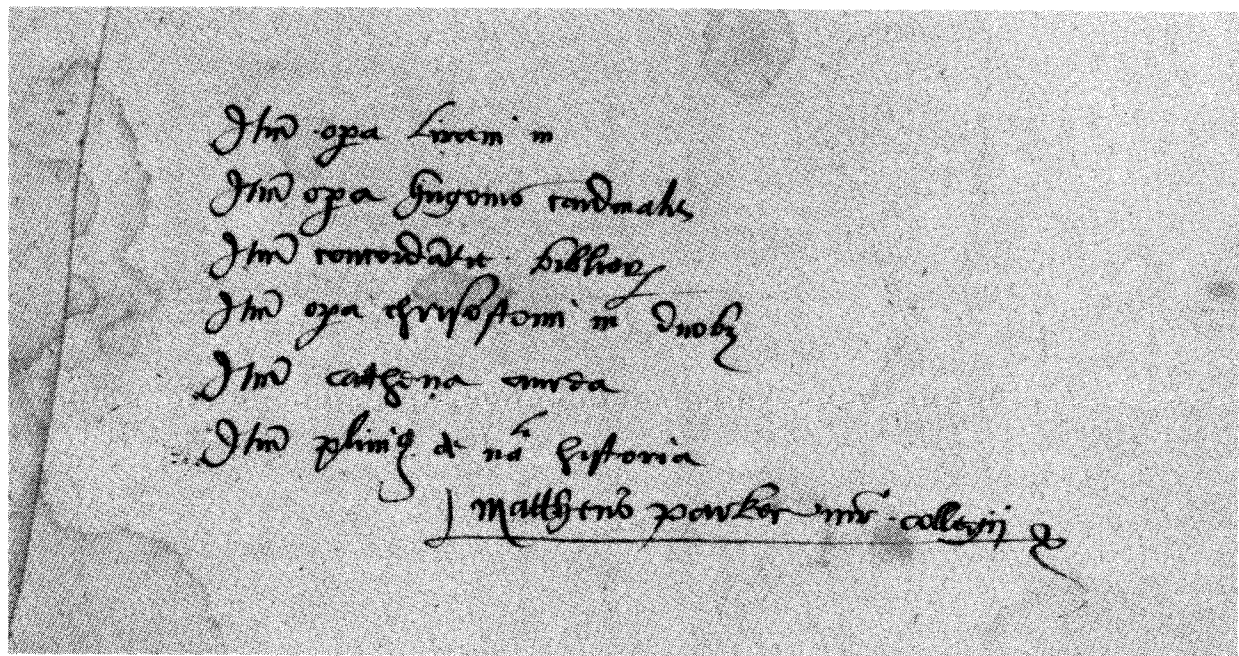 Itm̄ opa Lirani in
Itm̄ opa hugonis cardinalis
Itm̄ concordātie bibliorꝝ
Itm̄ opa chrisostomi in duobꝫ
Itm̄ cathena aurea
Itm̄ pliniꝰ de nāli historia
Mattheus parker mr̄ collegij